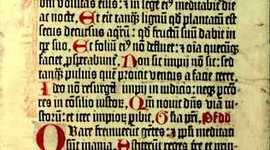 om volūtas eius : ⁊ i lege ei⁹ meditabit̄ die
ac nocte. Et eit tanq̄ lignū qd plantatū est
secus decursus aq̄rū : qd fructū suū dabit in
tp̄e suo. Et foliū ei⁹ nō defluet : ⁊ oīa quecūq̄
faciet, p̄sperabunt̄. Non sic impij nō sic : sed
tanq̄ puluis quē proicit ventus a facie terre.
Ideo nō resurgūt impij i iudicio : neq̄ pecc̄o
res in cōsilio iustor̄. Qm̄ nouit dn̄s viā iu
stor̄ : ⁊ iter impior̄ peribit. Gl̄ia pr̄i. Ps dd
Quare fremuerūt gētes : ⁊ pp̄li meditati
sunt inania.